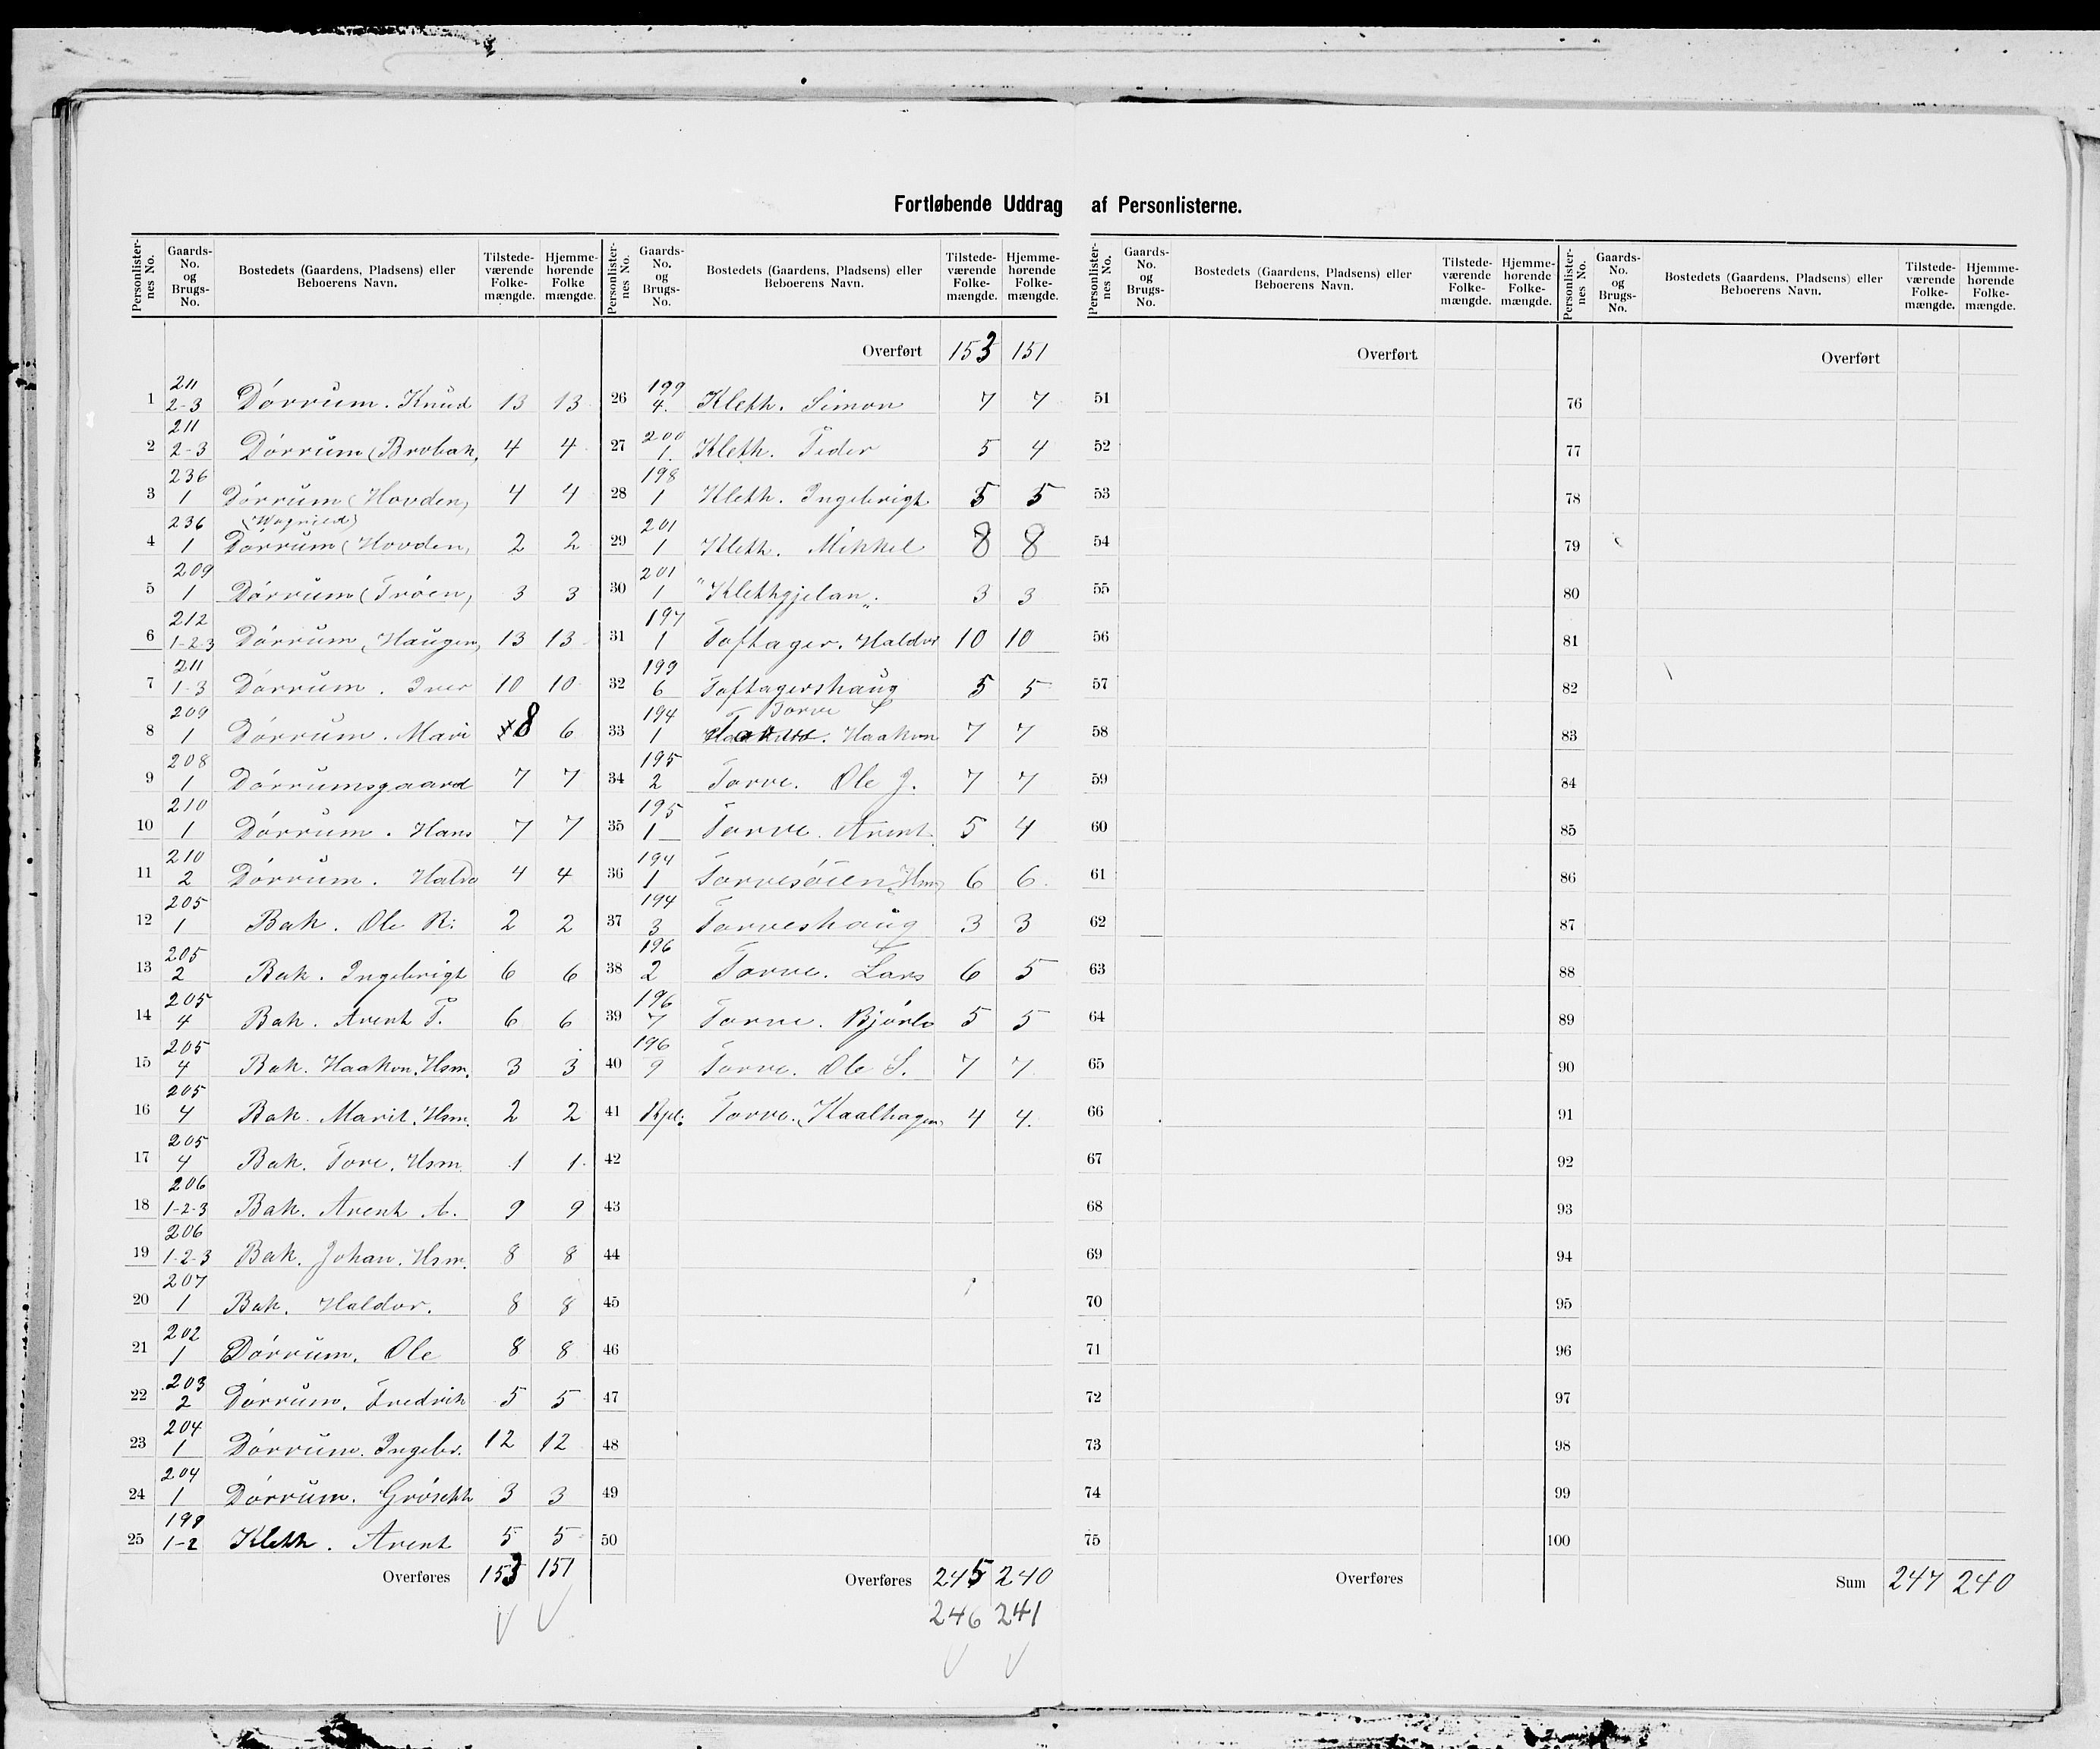 Fortløbende Uddrag af Personlisterne.
Personlister-nes No. | Gaards-No. og Brugs-No. | Bostedets (Gaardens, Pladsens) eller Beboerens Navn. | Tilstede-værende Folke-mængde. | Hjemme-hørende Folke mængde.
1 | 211 2-3 | Dørrum. Knud | 13 | 13
2 | 211 2-3 | Dørrum (Brobak) | 4 | 4
3 | 236 1 | Dørrum (Hovden) | 4 | 4
4 | 236 1 | Dørrum (Hovden) | 2 | 2
5 | 209 1 | Dørrum (Trøen) | 3 | 3
6 | 212 1-2-3 | Dørrum (Haugen) | 13 | 13
7 | 211 1-3 | Dørrum. Iver | 10 | 10
8 | 209 1 | Dørrum. Mari | 8 | 6
9 | 208 1 | Dørrumsgaard | 7 | 7
10 | 210 1 | Dørrum. Hans | 7 | 7
11 | 210 2 | Dørrum. | 4 | 4
12 | 205 1 | Bak. Ole R. | 2 | 2
13 | 205 2 | Bak. Ingebrigt | 6 | 6
14 | 205 4 | Bak. Arent T. | 6 | 6
15 | 205 4 | Bak. Haakon, Hsm. | 3 | 3
16 | 205 4 | Bak. Marit, Hsm. | 2 | 2
17 | 205 4 | Bak. Tore, Hsm. | 1 | 1
18 | 206 1-2-3 | Bak. Arent A. | 9 | 9
19 | 206 1-2-3 | Bak. Johan. Hsm. | 8 | 8
20 | 207 1 | Bak. Haldor. | 8 | 8
21 | 202 1 | Dørrum. Ole | 8 | 8
22 | 203 2 | Dørrum. Fredrik | 5 | 5
23 | 204 1 | Dørrum. Ingebr. | 12 | 12
24 | 204 1 | Dørrum. | 3 | 3
25 | 198 1-2 | Kleth. Arent | 5 | 5
Overføres | 153 | 151
Personlister-nes No. | Gaards-No. og Brugs-No. | Bostedets (Gaardens, Pladsens) eller Beboerens Navn. | Tilstede-værende Folke-mængde. | Hjemme-hørende Folke-mængde.
Overført | 153 | 151
26 | 199 4. | Kleth. Simon | 7 | 7
27 | 200 1. | Kleth. Peder | 5 | 4
28 | 198 1 | Kleth. Ingebrigt | 5 | 5
29 | 201 1 | Kleth. Mikkel | 8 | 8
30 | 201 1 | "Klethgjelan" | 3 | 3
31 | 197 1 | Toftager. Haldor | 10 | 10
32 | 199 6 | Toftagershaug | 5 | 5
33 | 194 1 | Torve Haakon | 7 | 7
34 | 195 2 | Torve. Ole J. | 7 | 7
35 | 195 1 | Torve. Arent. | 5 | 4
36 | 194 1 | Torvesøien, Hsm | 6 | 6
37 | 194 3 | Torveshaug | 3 | 3
38 | 196 2 | Torve. Lars | 6 | 5
39 | 196 7 | Torve. | 5 | 5
40 | 196 9 | Torve. Ole S. | 7 | 7
41 | Rpl. | Torve. (Kaalhagen) | 4 | 4.
42
43
44
45
46
47
48
49
50
Overføres | 245 | 240
246 | 241
Personlister-nes No. | Gaards-No. og Brugs-No. | Bostedets (Gaardens, Pladsens) eller Beboerens Navn. | Tilstede-værende Folke-mængde. | Hjemme-hørende Folke-mængde.
Overført
51
52
53
54
55
56
57
58
59
60
61
62
63
64
65
66
67
68
69
70
71
72
73
74
75
Overføres
Personlister-nes No. | Gaards-No. og Brugs-No. | Bostedets (Gaardens, Pladsens) eller Beboerens Navn. | Tilstede-værende Folke-mængde. | Hjemme-hørende Folke-mængde.
Overført
76
77
78
79
80
81
82
83
84
85
86
87
88
89
90
91
92
93
94
95
96
97
98
99
100
Sum | 247 | 240